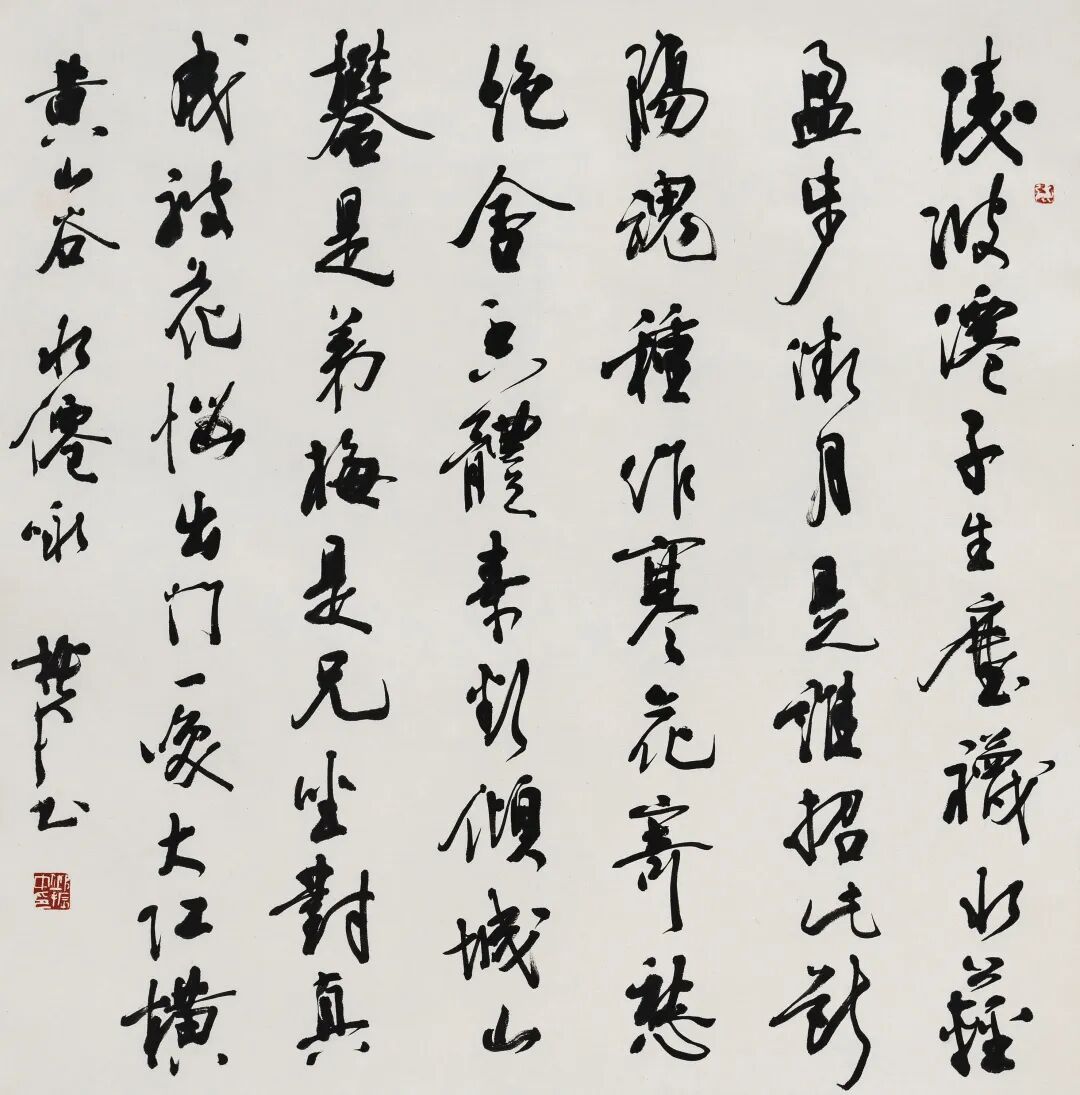 淩波僊子生塵襪水上輕
盈步微月是誰招此斷
腸魂種作寒花寄愁
絕含香體素欲傾城山
礬是弟梅是兄坐對真
成被花惱出門一咲大江橫
黃山谷 水僊咏 振中书
邱振中印